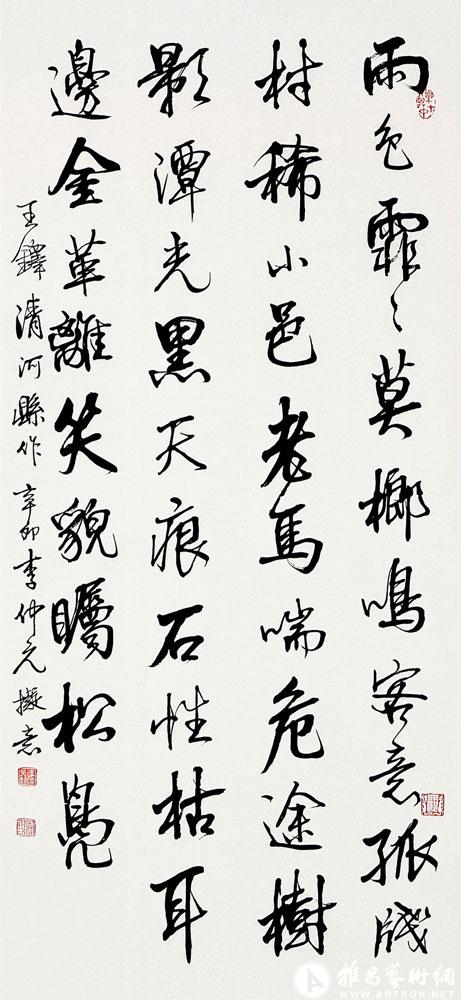 雨色霏々莫榔鳴客意孤殘
村稀小邑老馬喘危途樹
影潭光黑天痕石性枯耳
邊金革離笑貌矚松鳧
王鐸清河縣作 辛卯李仲元擬意
雅昌藝術網
WWW.ARTRON.NET